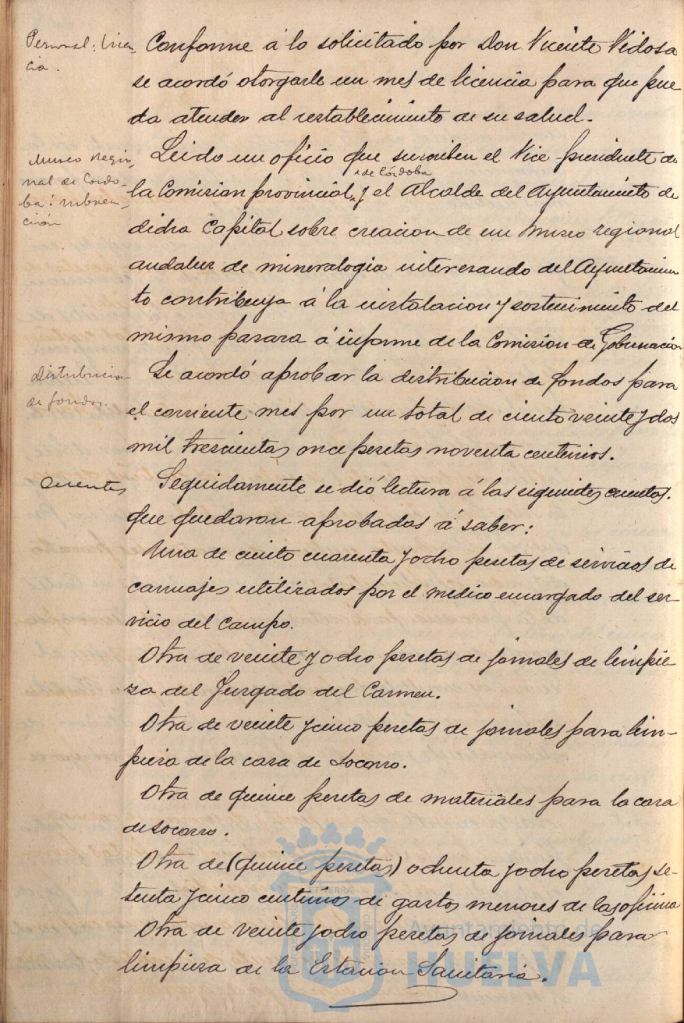 Personal: licen
cia.
Conforme á lo solicitado por Don Vicente Vidosa
se acordó otorgarle un mes de licencia para que pue
da atender al restablecimiento de su salud.
Museo regio
nal de Cordo-
ba: subven-
ción
Leido un oficio que suscriben el Vice presidente de
la Comision provincial, y el Alcalde del Ayuntamiento de
de Córdoba
dicha Capital sobre creacion de un Museo regional
andaluz de mineralogia interesando del Ayuntamien
to contribuya á la instalacion y sostenimiento del
mismo pasara á informe de la Comision de Gobernacion
Distribucion
de fondos.
Se acordó aprobar la distribucion de fondos para
el corriente mes por un total de ciento veinte y dos
mil trescientas once pesetas noventa centimos.
Cuentas
Seguidamente se dió lectura á las siguientes cuentas.
que quedaron aprobadas á saber:
Una de ciento cuarenta y ocho pesetas de servicios de
carruajes utilizados por el medico encargado del ser-
vicio del campo.
Otra de veinte y ocho pesetas de jornales de limpie
za del Juzgado del Carmen.
Otra de veinte y cinco pesetas de jornales para lim-
pieza de la casa de Socorro.
Otra de quince pesetas de materiales para la casa
de socorro.
Otra de (quince pesetas) ochenta y ocho pesetas se-
tenta y cinco centimos de gastos menores de las oficina
Otra de veinte y ocho pesetas de jornales para
limpieza de la Estacion Sanitaria.
Ayuntamiento de
HUELVA